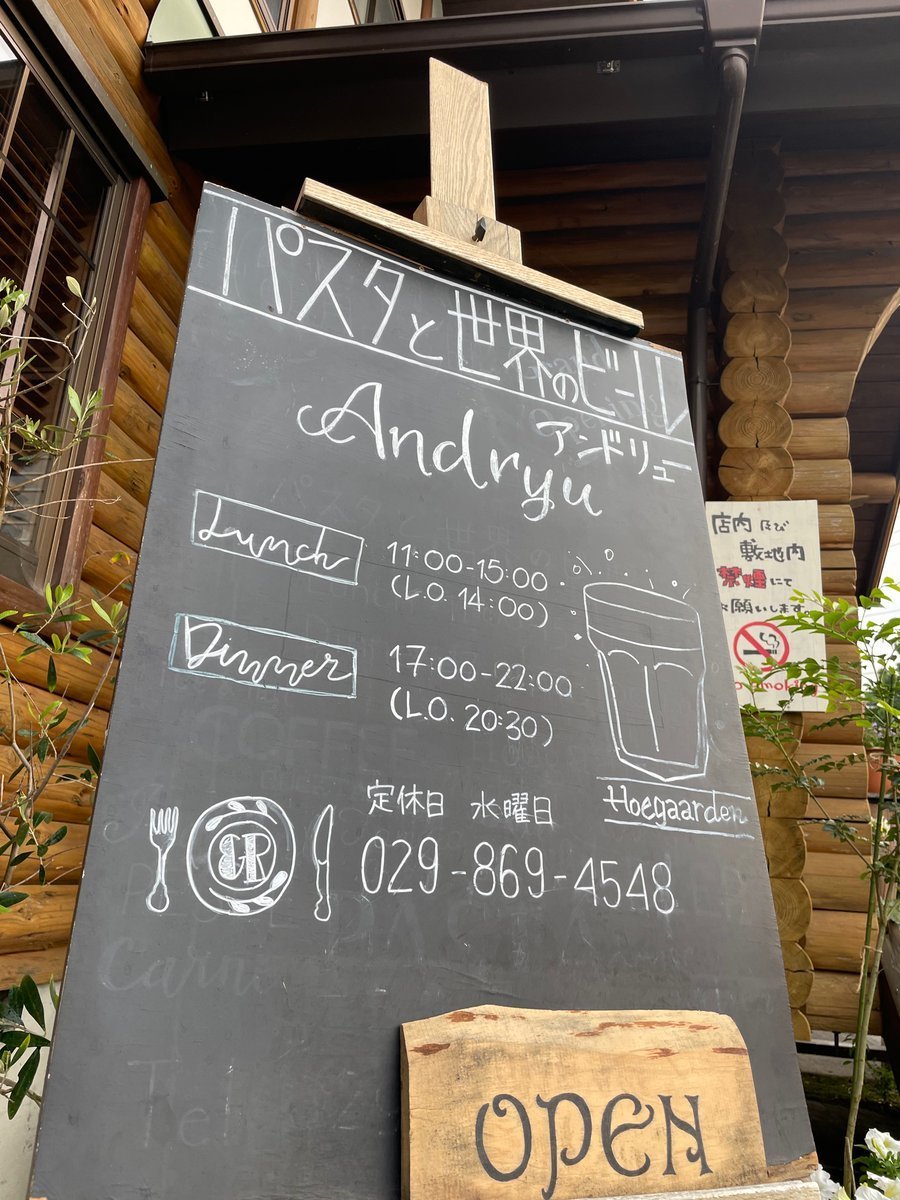 パスタと世界のビール
Andryu
アンドリュー
Lunch 11:00-15:00
(L.O. 14:00)
Dinner 17:00-22:00
(L.O. 20:30)
Hoegaarden
定休日 水曜日
029-869-4548
OPEN
店内及び
敷地内
禁煙にて
お願いします。